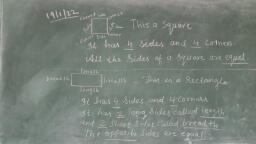 19/1/22 This a Square
It has 4 Sides and 4 Corners
All the Sides of a Square are equal
length
breadth breadth This is a Rectangle
length
It has 4 Sides and 4 Corners
It has 2 long Sides called length
and 2 Short Sides called breadth
The opposite Sides are equal